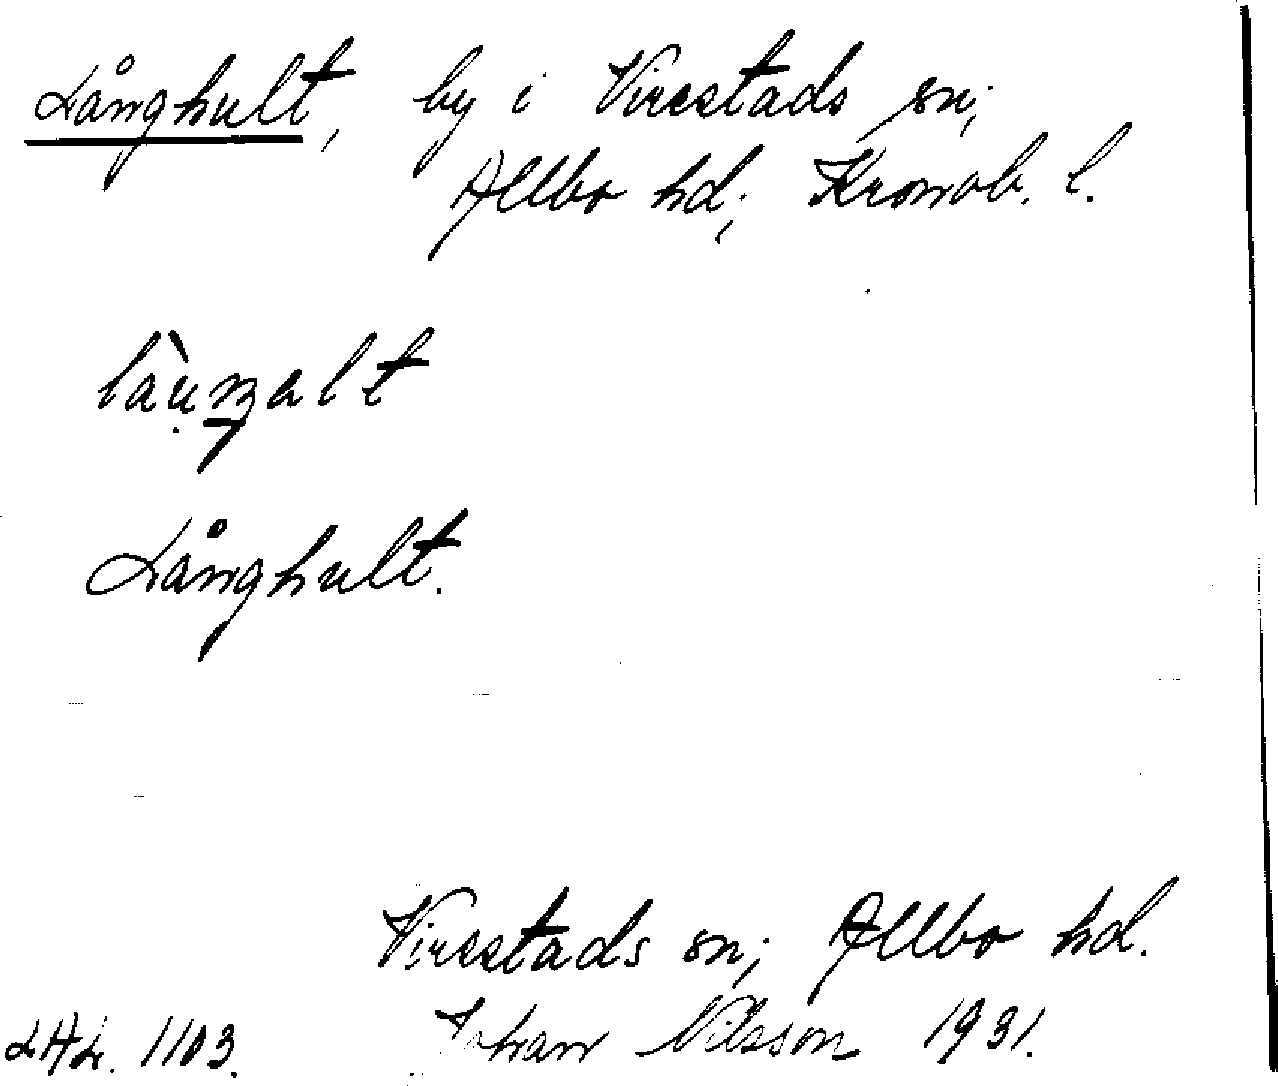 Långhult, by i Virestads sn;
Allbo hd; Kronob. l.
Långhult.
Virestads sn; Allbo hd.
LAL. 1103. Johan Nilsson 1931.